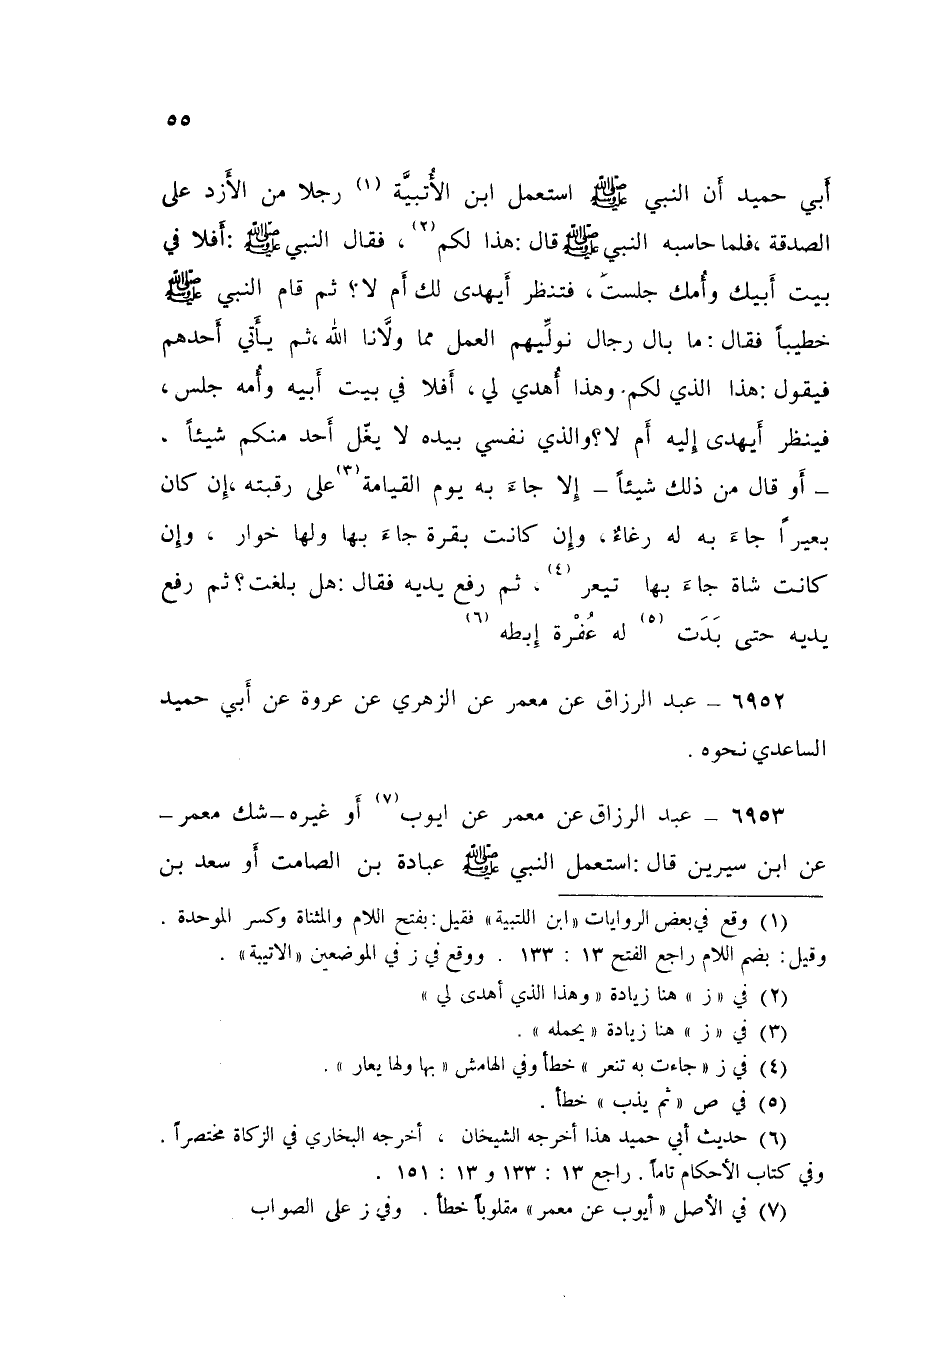 ٥٥
أَبي حميد أَن النبي ﷺ استعمل ابن الأُتبيَّة (١) رجلا من الأَزد على
الصدقة ،فلما حاسبه النبي ﷺ قال :هذا لكم(٢) ، فقال النبي ﷺ :أَفلا في
بيت أَبيك وأُمك جلستَ ، فتنظر أَيهدى لك أَم لا؟ ثم قام النبي ﷺ
خطيباً فقال : ما بال رجال نولِّيهم العمل مما ولَّانا الله ،ثم يأْتي أَحدهم
فيقول :هذا الذي لكم. وهذا أُهدي لي ، أَفلا في بيت أَبيه وأُمه جلس ،
فينظر أَيهدى إليه أَم لا؟والذي نفسي بيده لا يغّل أَحد منكم شيئاً .
ـ أَو قال من ذلك شيئاً ـ إلا جاءَ به يوم القيامة(٣)على رقبته ،إن كان
بعيراً جاءَ به له رغاءٌ ، وإن كانت بقرة جاءَ بها ولها خوار ، وإن
كانت شاة جاءَ بها تيعر (٤) ، ثم رفع يديه فقال :هل بلغت؟ ثم رفع
يديه حتى بَدَت (٥) له عُفْرة إبطه (٦)
٦٩٥٢ ـ عبد الرزاق عن معمر عن الزهري عن عروة عن أَبي حميد
الساعدي نحوه .
٦٩٥٣ ـ عبد الرزاق عن معمر عن ايوب(٧) أَو غيره ـ شك معمر ـ
عن ابن سيرين قال :استعمل النبي ﷺ عبادة بن الصامت أَو سعد بن
(١) وقع في بعض الروايات «ابن اللتبية» فقيل : بفتح اللام والمثناة وكسر الموحدة .
وقيل : بضم اللام راجع الفتح ١٣ : ١٣٣ . ووقع في ز في الموضعين «الاتيبة» .
(٢) في «ز » هنا زيادة « وهذا الذي أهدى لي »
(٣) في «ز » هنا زيادة « يحمله » .
(٤) في ز « جاءت به تنعر » خطأ وفي الهامش « بها ولها يعار » .
(٥) في ص « ثم يذب » خطأ .
(٦) حديث أبي حميد هذا أخرجه الشيخان ، أخرجه البخاري في الزكاة مختصراً .
وفي كتاب الأحكام تاماً . راجع ١٣ : ١٣٣ و ١٣ : ١٥١ .
(٧) في الأصل « أيوب عن معمر » مقلوباً خطأ . وفي ز على الصواب